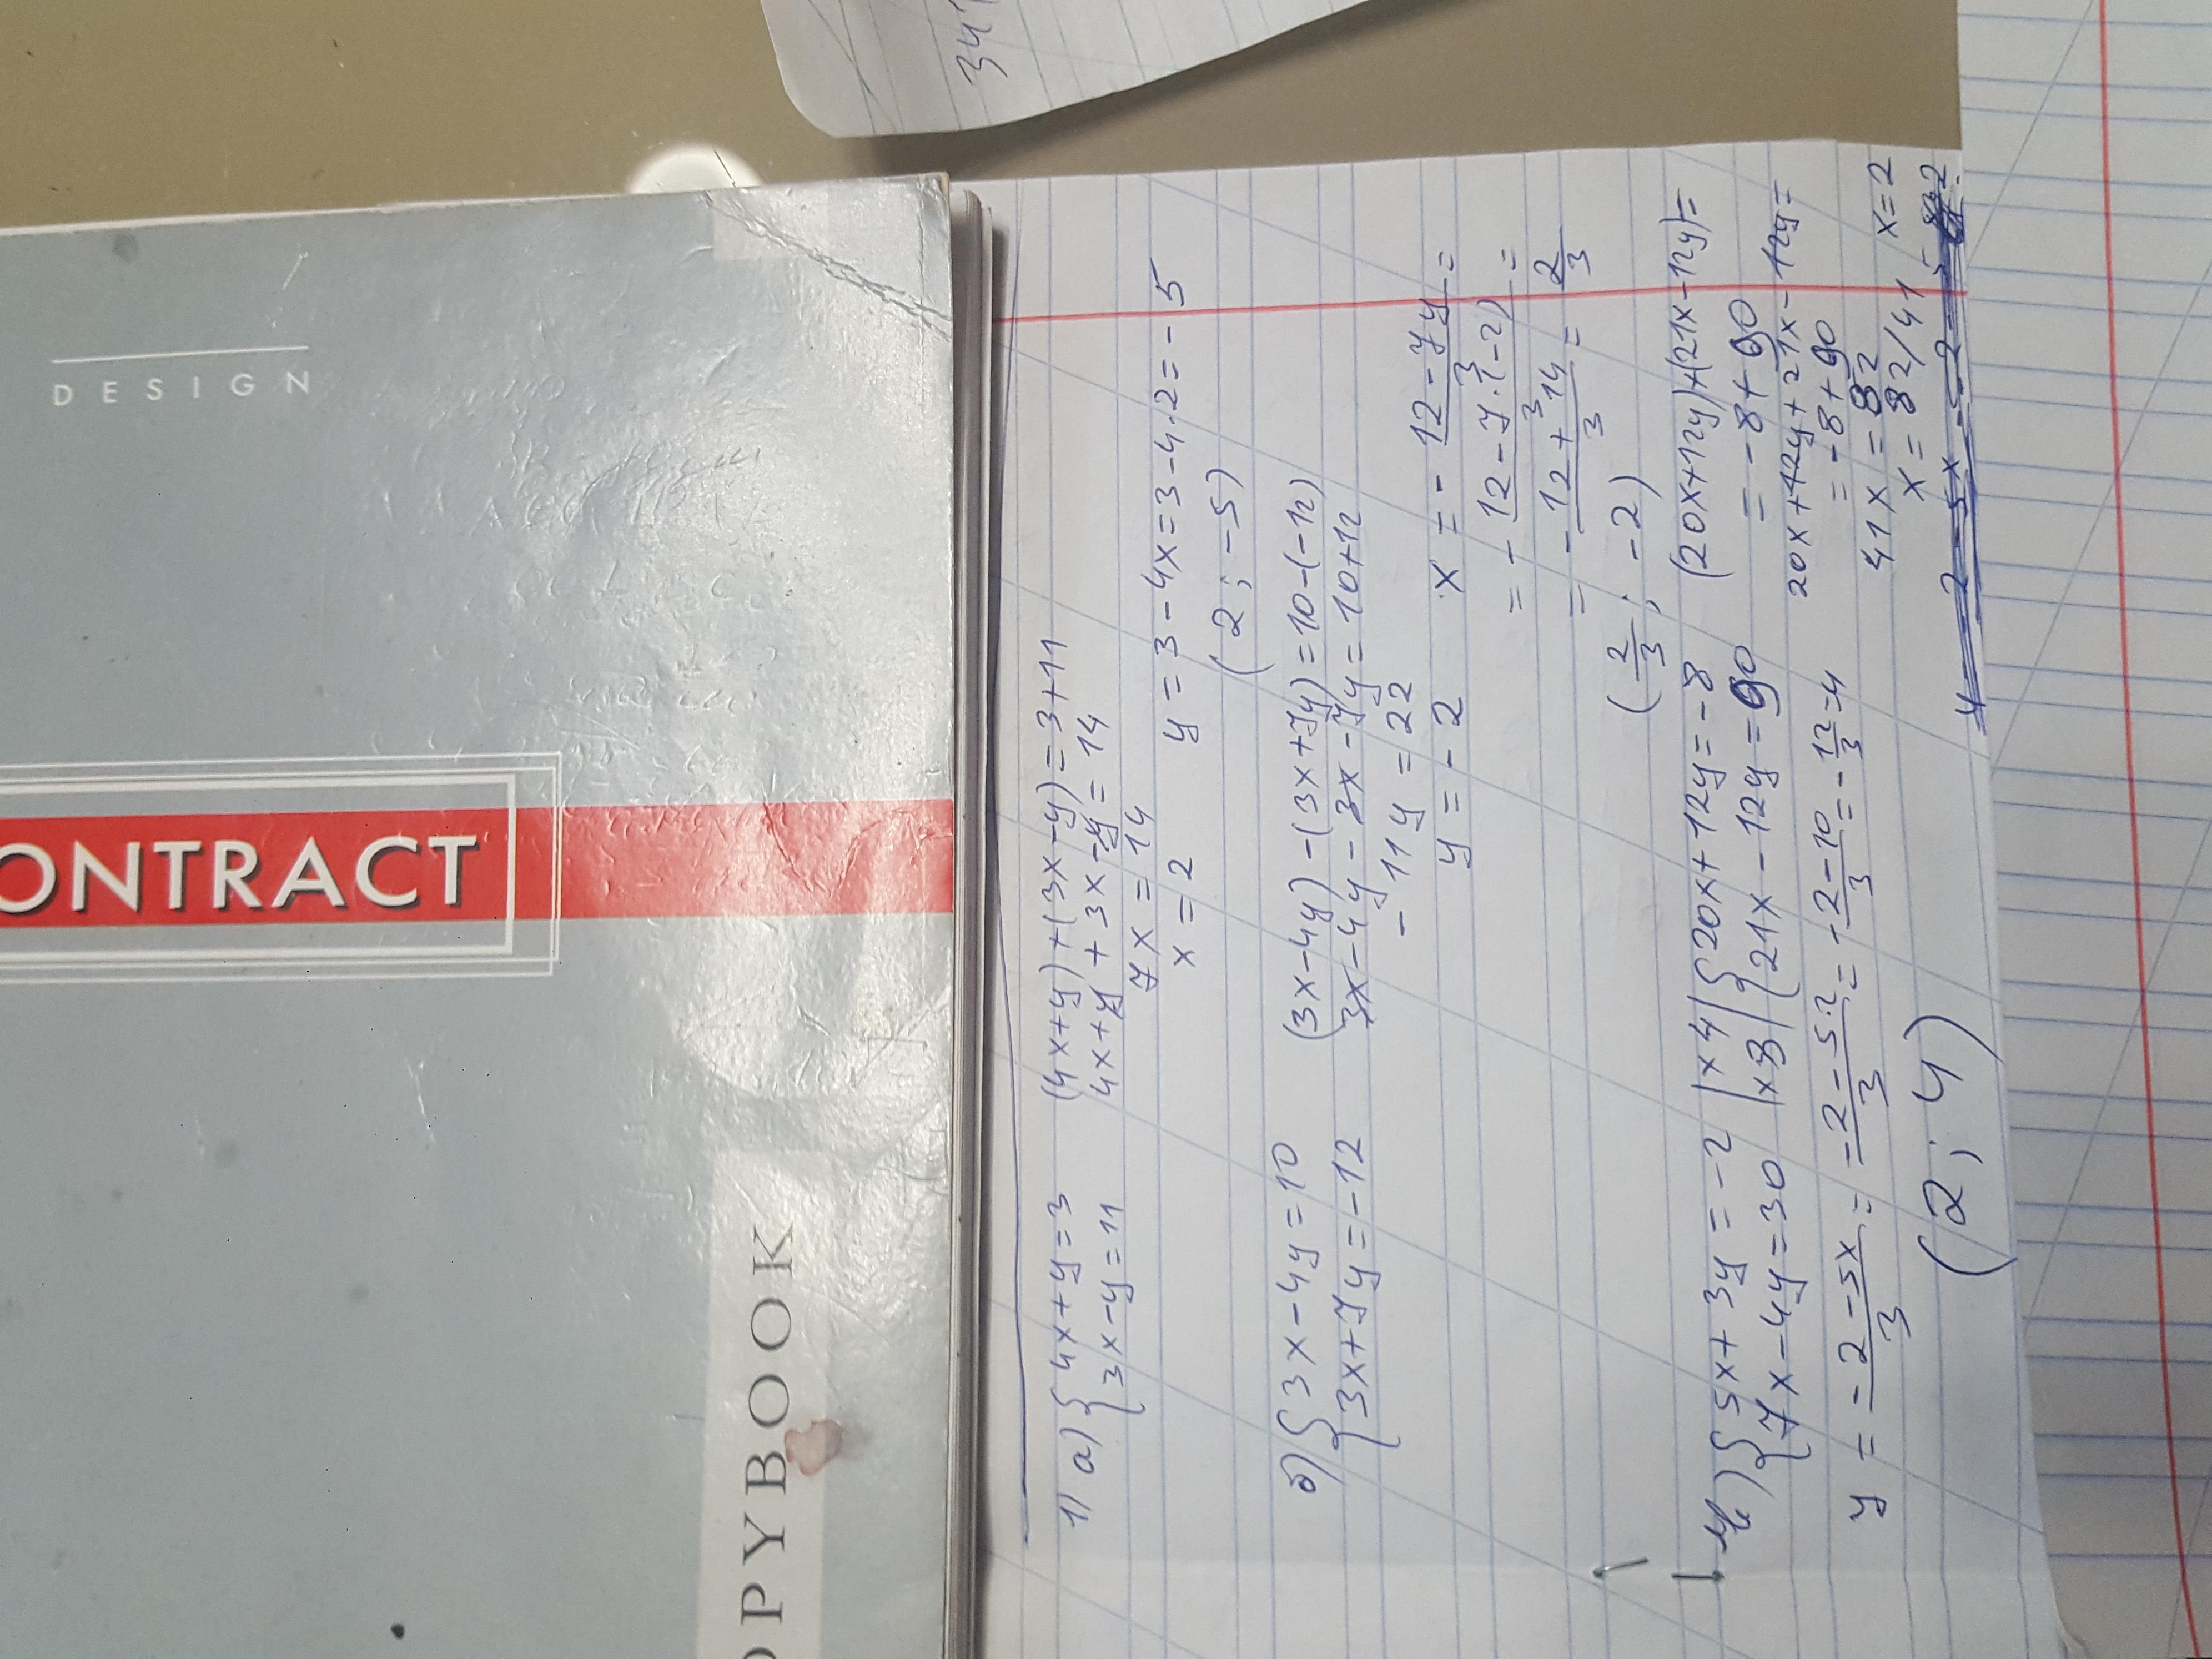 DESIGN
ONTRACT
OPYBOOK
341
1) a) { 4x+y=3
3x-y=11
(4x+y)+(3x-y)=3+11
4x+y+3x-y=14
7x=14
x=2
y=3-4x=3-4·2=-5
(2; -5)
б) { 3x-4y=10
3x+7y=-12
(3x-4y)-(3x+7y)=10-(-12)
3x-4y-3x-7y=10+12
-11y=22
y=-2
x=-12-7y/3=
=-12-7·(-2)/3=
=-12+14/3=2/3
(2/3; -2)
{ 5x+3y=-2 |x4| { 20x+12y=-8
7x-4y=30 |x3| 21x-12y=90
(20x+12y)+(21x-12y)=
=-8+90
20x+12y+21x-12y=
=-8+90
41x=82
x=82/41 x=2
y=-2-5x/3=-2-5·2/3=-2-10/3=-12/3=4
(2; 4)